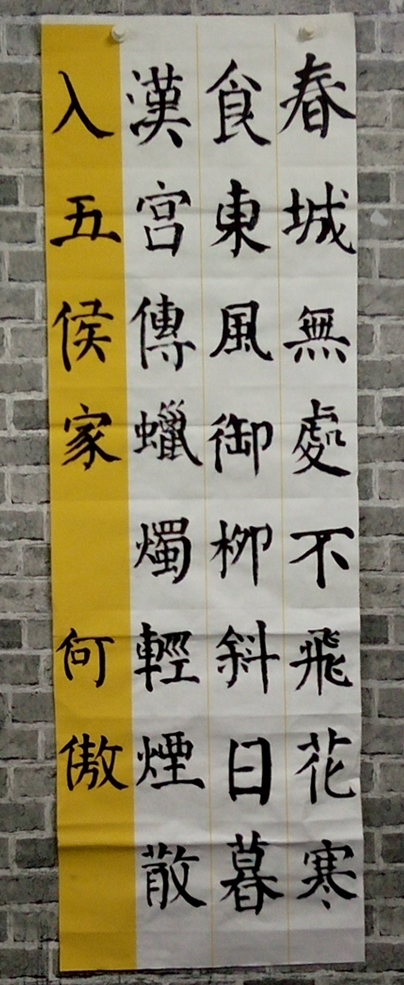 春城無處不飛花寒
食東風御柳斜日暮
漢宮傳蠟燭輕煙散
入五侯家 何傲